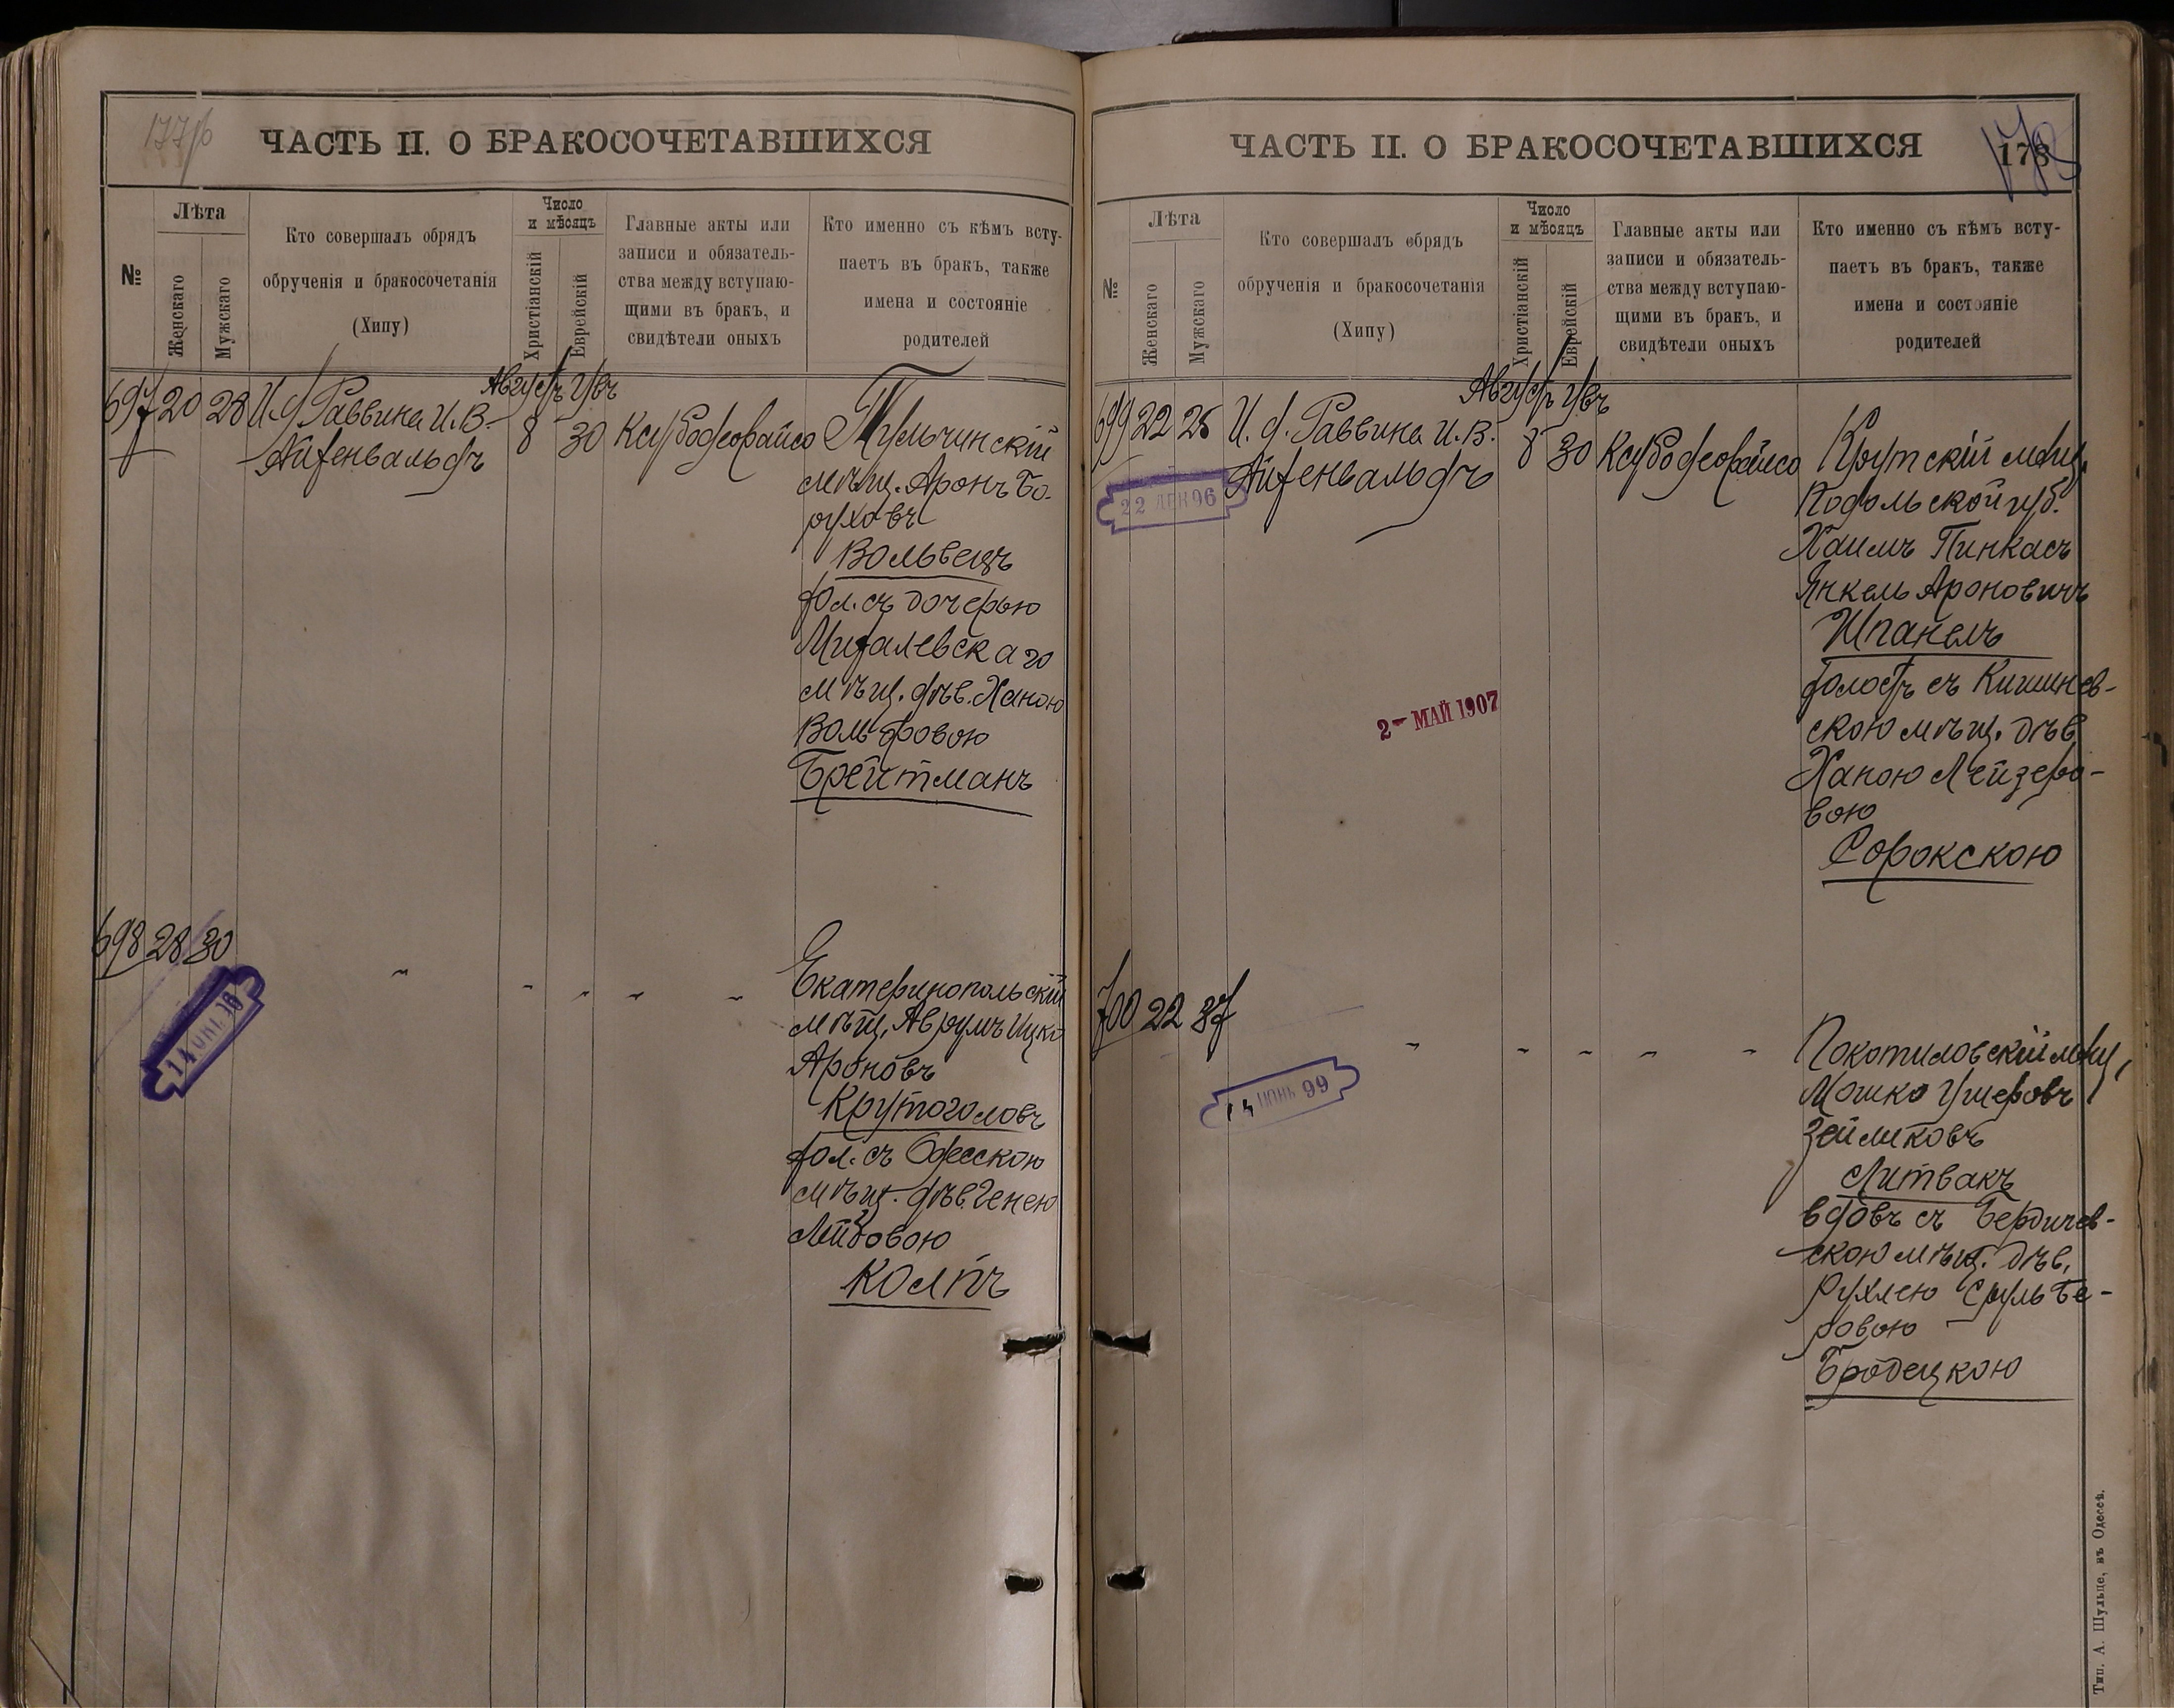 177об
ЧАСТЬ II. О БРАКОСОЧЕТАВШИХСЯ
№
Лѣта
Женскаго
Мужскаго
Кто совершалъ обрядъ
обрученія и бракосочетанія
(Хипу)
Число
и мѣсяцъ
Христіанскій
Еврейскій
Главные акты или
записи и обязатель-
ства между вступаю-
щими въ бракъ, и
свидѣтели оныхъ
Кто именно съ кѣмъ всту-
паетъ въ бракъ, также
имена и состояніе
родителей
Августъ Увъ
697 20 28 И. д. Раввина И. В.
Айзенвальдъ
8 30
Тульчинскій
мѣщ. Аронъ Бо-
руховъ
Вольвецъ
хол. съ дочерью
мѣщ. дѣв. Ханою
Вольфовою
Брейтманъ
698 28 30
14 ОКТ 10
Екатеринопольскій
мѣщ. Аврумъ Ицко
Ароновъ
Крутоголовъ
хол. съ Одесскою
мѣщ. дѣв. Генею
Лейзовою
Колпъ
ЧАСТЬ II. О БРАКОСОЧЕТАВШИХСЯ
178
№
Лѣта
Женскаго
Мужскаго
Кто совершалъ обрядъ
обрученія и бракосочетанія
(Хипу)
Число
и мѣсяцъ
Христіанскій
Еврейскій
Главные акты или
записи и обязатель-
ства между вступаю-
щими въ бракъ, и
свидѣтели оныхъ
Кто именно съ кѣмъ всту-
паетъ въ бракъ, также
имена и состояніе
родителей
Августъ Увъ
699 22 25 И. д. Раввина И. В.
Айзенвальдъ
8 30
22 ДЕК 96
2- МАЙ 1907
Крутскій мѣщ.
Подольской губ.
Хаимъ Пинкасъ
Янкель Ароновичъ
Шпанелъ
холостъ съ Кишинев-
скою мѣщ. дѣв.
Ханою Лейзеро-
вою
Сорокскою
700 22 37
14 ІЮНЬ 99
Покотиловскій мѣщ.
Мошко Ушеровъ
Зейликовъ
Литвакъ
вдовъ съ Бердичев-
скою мѣщ. дѣв.
Рухлею Сруль Бе-
ровою
Бродецкою
Тип. А. Шульце, въ Одессѣ.